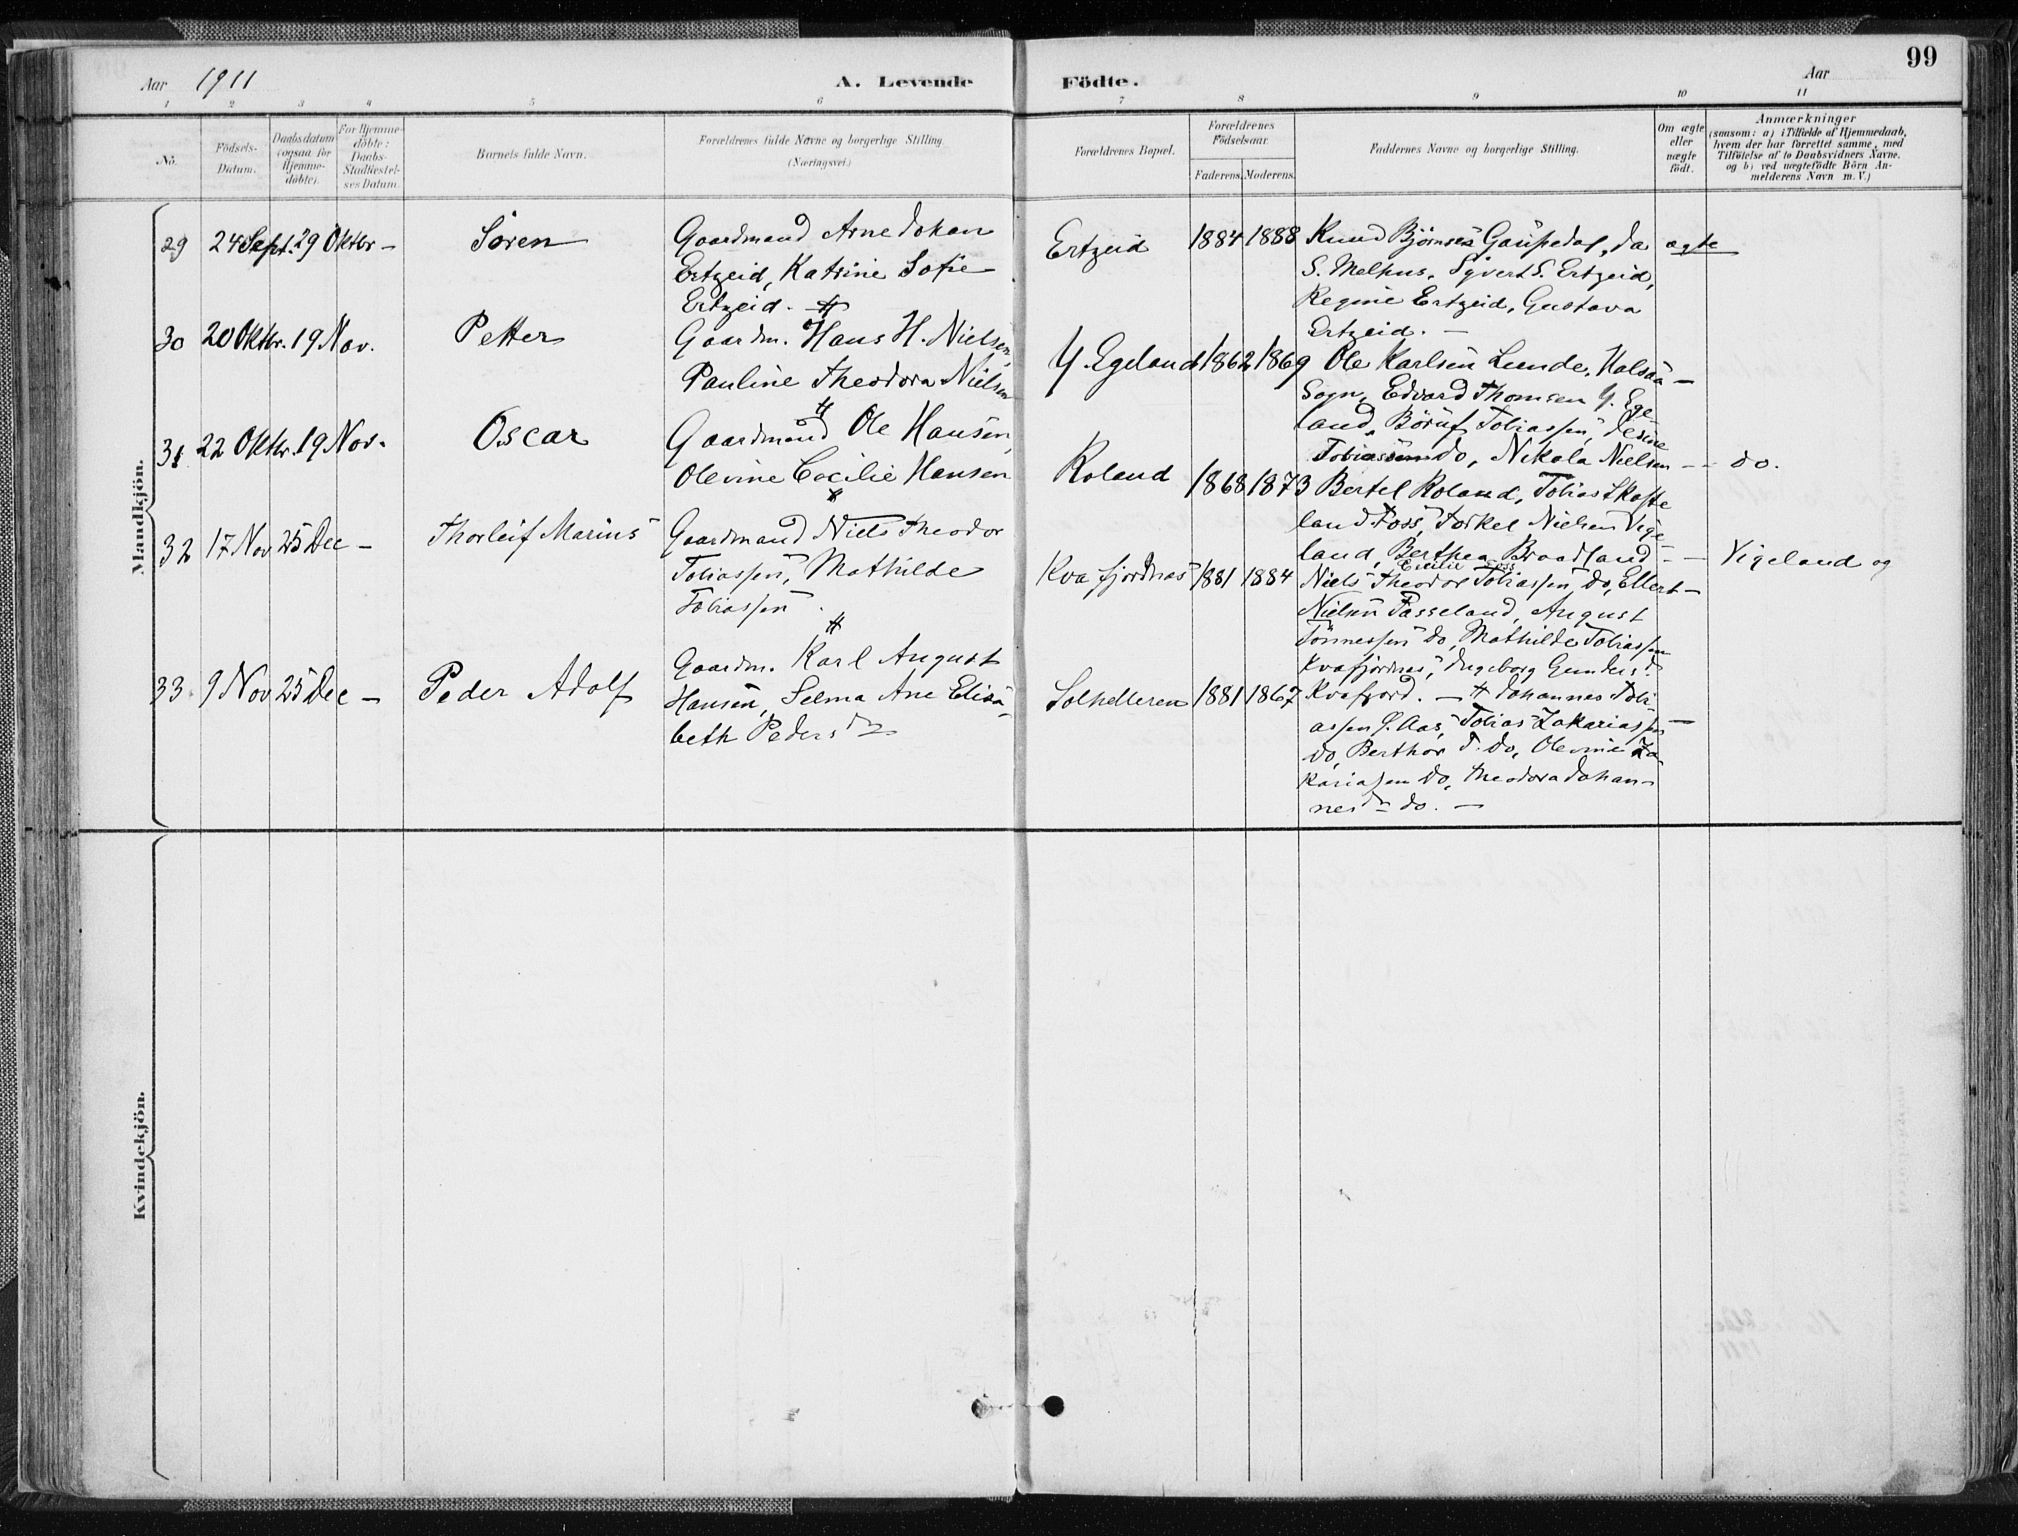 Aar 1911 A. Levende
Födte. Aar 99
1 2 3 4 5 6 7 8 9 10 11
Nô.
Födsels-
Datum.
Daabsdatum
(ogsaa for
Hjemme-
döbte).
For Hjemme-
döbte:
Daabs-
Stadfæstel-
ses Datum.
Barnets fulde Navn.
Forældrenes fulde Navne og borgerlige Stilling.
(Næringsvei.)
Forældrenes Bopæl.
Forældrenes
Födselsaar.
Faderens. Moderens.
Faddernes Navne og borgerlige Stilling.
Om ægte
eller
uægte
födt.
Anmærkninger
(saasom: a) i Tilfælde af Hjemmedaab,
hvem der har forrettet samme, med
Tilföielse af to Daabsvidners Navne,
og b) ved uægtefödte Börn An-
melderens Navn m. V.)
Mandkjön.
29 24 Sept. 29 Oktbr — Søren
Gaardmand Arne Johan
Ertzeid, Katrine Sofie
Ertzeid. —
Ertzeid 1884 1888
Knud Bjørnsen Gaupedal, Da
S. Melhus, Syvert S. Ertzeid,
Regine Ertzeid, Gustava
Ertzeid. —
ægte
30 20 Oktbr. 19 Nov. Petter
Gaardm. Hans H. Nielsen,
Pauline Theodora Nielsen
Y. Egeland 1862 1869
Ole Karlsen Lunde, Halsaa —
Sogn, Edvard Thomsen Y. Ege
land, Børuf Tobiassen,
Tobiassen do, Nikola Nielsen — — do.
31 22 Oktbr. 19 Nov. Oscar
Gaardmand Ole Hansen,
Olevine Cecilie Hansen
Roland 1868 1873
Bertel Roland, Tobias Skofte
land Foss, Torkel Nielsen Vige
land, Berthea Braadland — — Vigeland og
Cecilie Foss
32 17 Nov 25 Dec — Thorleif Marius
Gaardmand Niels Theodor
Tobiassen, Mathilde
Tobiassen.
Kvafjordnæs 1881 1884
Niels Theodor Tobiassen do, Ellert —
Nielsen Fasseland, August
Tønnessen do, Mathilde Tobiassen
Kvafjordnæs, Ingeborg Gundersd.
Kvafjord. —
33 9 Nov 25 Dec — Peder Adolf
Gaardm. Karl August
Hansen, Selma Ane Elisa-
beth Pedersdr
Solhelleren 1881 1867
Johannes Tobi-
assen Y. Aas, Tobias Zakariassen —
do, Berthor J. do, Olevine Za-
kariasen do, Theodora Johan-
nesdr do. —
Kvindekjön.